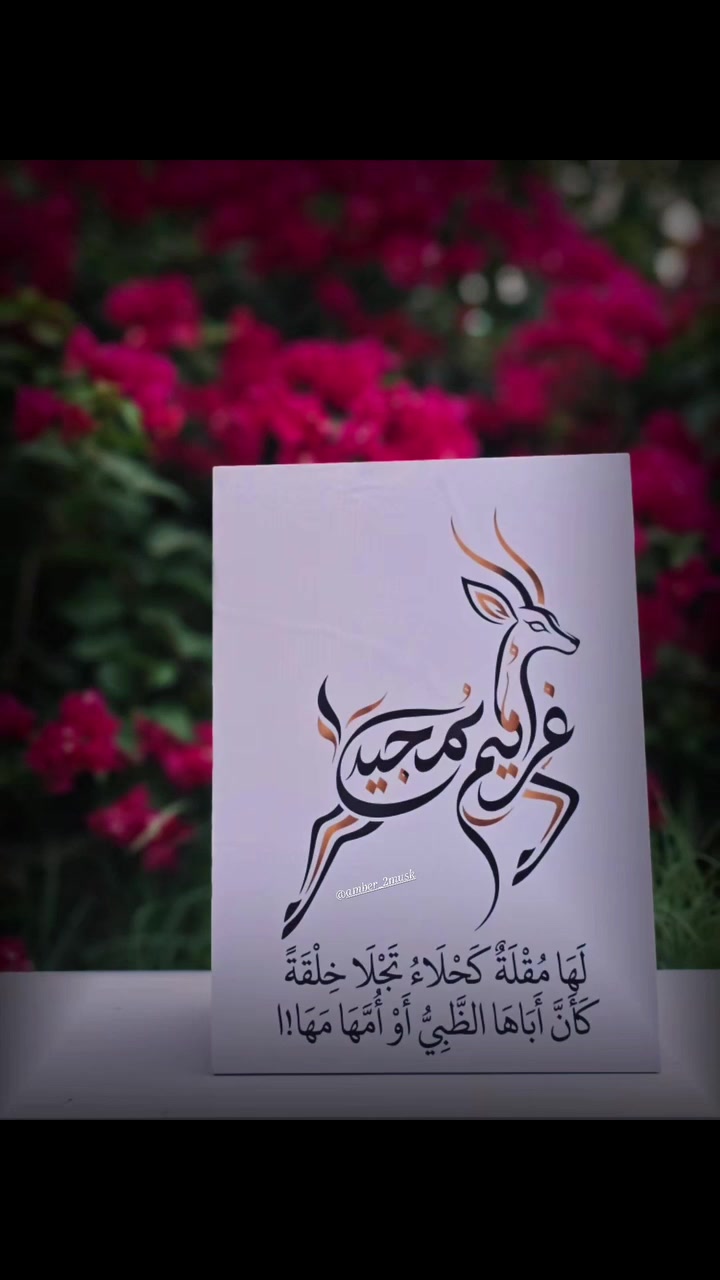 مجيد
@amber_2musk
لَهَا مُقْلَةٌ كَحْلَاءُ تَجْلَا خِلْقَةً
كَأَنَّ أَبَاهَا الظَّبِيُّ أَوْ أُمَّهَا مَهَا!ا